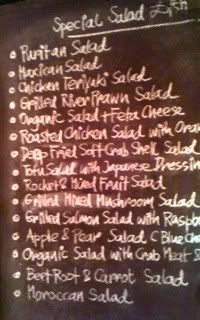 Special Salad
Puritan Salad
Maxican Salad
Chicken Teriyaki Salad
Grilled River Prawn Salad
Organic Salad + Feta Cheese
Roasted Chicken Salad with Oran
Deep Fried Soft Crab Shell Salad
Tofu Salad with Japanese Dressin
Rocket & Mixed Fruit Salad
Grilled Mixed Mushroom Salad
Grilled Salmon Salad with Raspb
Apple & Pear Salad C Blue Ch
Organic Salad with Crab Meat &
Beet Root & Carrot Salad
Moroccan Salad